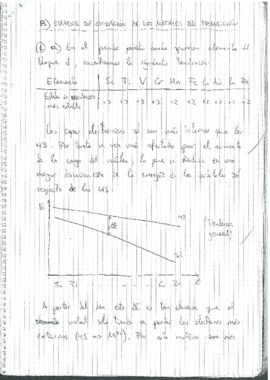 B) ESTADOS DE OXIDACIÓN DE LOS METALES DE TRANSICIÓN
a) En el primer periodo de elementos del
bloque d, encontramos la siguiente tendencia:
Elemento Sc Ti V Cr Mn Fe Co Ni Cu Zn
Estado de oxidación
más estable +3 +3 +3 +2 +2 +2
Las capas electrónicas 3d son más internas que las
4s. Por tanto se ven más afectadas por el aumento
de la carga del núcleo, lo que se traduce en una
mayor disminución de la energía de los orbitales 3d
respecto de los 4s:
E
ΔE
4s
3d
(Tendencia
general)
Sc Ti Cr Zn Z
A partir del este ΔE es tan elevada que el
metal solo tiende a perder los electrones más
externos (4s). Por este motivo son más